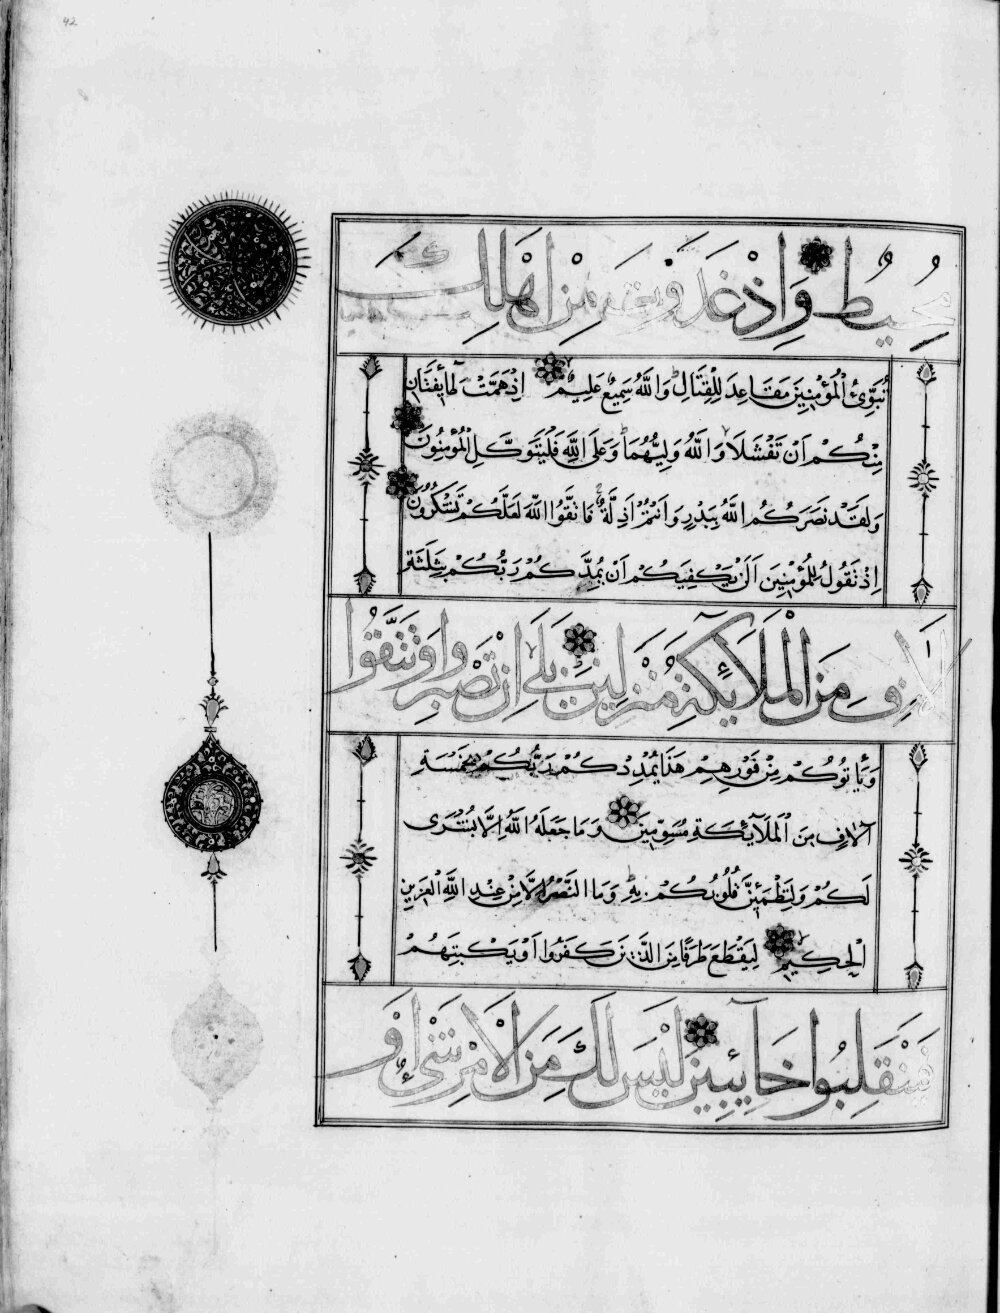 42
مُحِيطٌ وَإِذْ غَدَوْتَ مِنْ اَهْلِكَ
تُبَوِّئُ الْمُؤْمِنِينَ مَقَاعِدَ لِلْقِتَالِ وَاللَّهُ سَمِيعٌ عَلِيمٌ اِذْ هَمَّتْ طَائِفَتَانِ
مِنْكُمْ اَنْ تَفْشَلَا وَاللَّهُ وَلِيُّهُمَا وَعَلَى اللَّهِ فَلْيَتَوَكَّلِ الْمُؤْمِنُونَ
وَلَقَدْ نَصَرَكُمُ اللَّهُ بِبَدْرٍ وَاَنْتُمْ اَذِلَّةٌ فَاتَّقُوا اللَّهَ لَعَلَّكُمْ تَشْكُرُونَ
اِذْ تَقُولُ لِلْمُؤْمِنِينَ اَلَنْ يَكْفِيَكُمْ اَنْ يُمِدَّكُمْ رَبُّكُمْ بِثَلٰثَةِ
اٰلَافٍ مِنَ الْمَلَآئِكَةِ مُنْزَلِينَ بَلَى اِنْ تَصْبِرُوا وَتَتَّقُوا
وَيَأْتُوكُمْ مِنْ فَوْرِهِمْ هَذَا يُمْدِدْكُمْ رَبُّكُمْ بِخَمْسَةِ
اٰلَافٍ مِنَ الْمَلَآئِكَةِ مُسَوِّمِينَ وَمَا جَعَلَهُ اللَّهُ اِلَّا بُشْرَى
لَكُمْ وَلِتَطْمَئِنَّ قُلُوبُكُمْ بِهِ وَمَا النَّصْرُ اِلَّا مِنْ عِنْدِ اللَّهِ الْعَزِيزِ
الْحَكِيمِ لِيَقْطَعَ طَرَفًا مِنَ الَّذِينَ كَفَرُوا اَوْ يَكْبِتَهُمْ
فَيَنْقَلِبُوا خَآئِبِينَ لَيْسَ لَكَ مِنَ الْاَمْرِ شَيْءٌ اَوْ